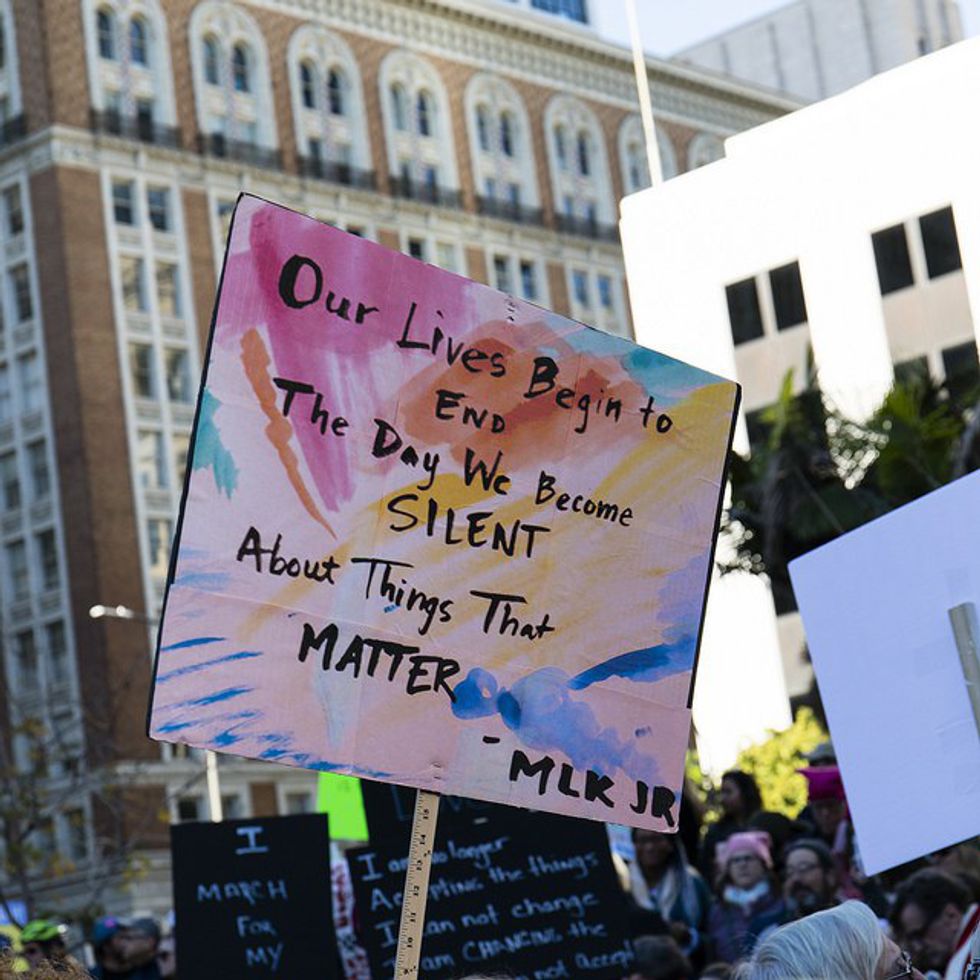 Our Lives Begin to
END
The Day We Become
SILENT
About Things That
MATTER
- MLK JR
I
MARCH
FOR
MY
I am no longer
Accepting the things
I can not change
I am CHANGING the
not accept